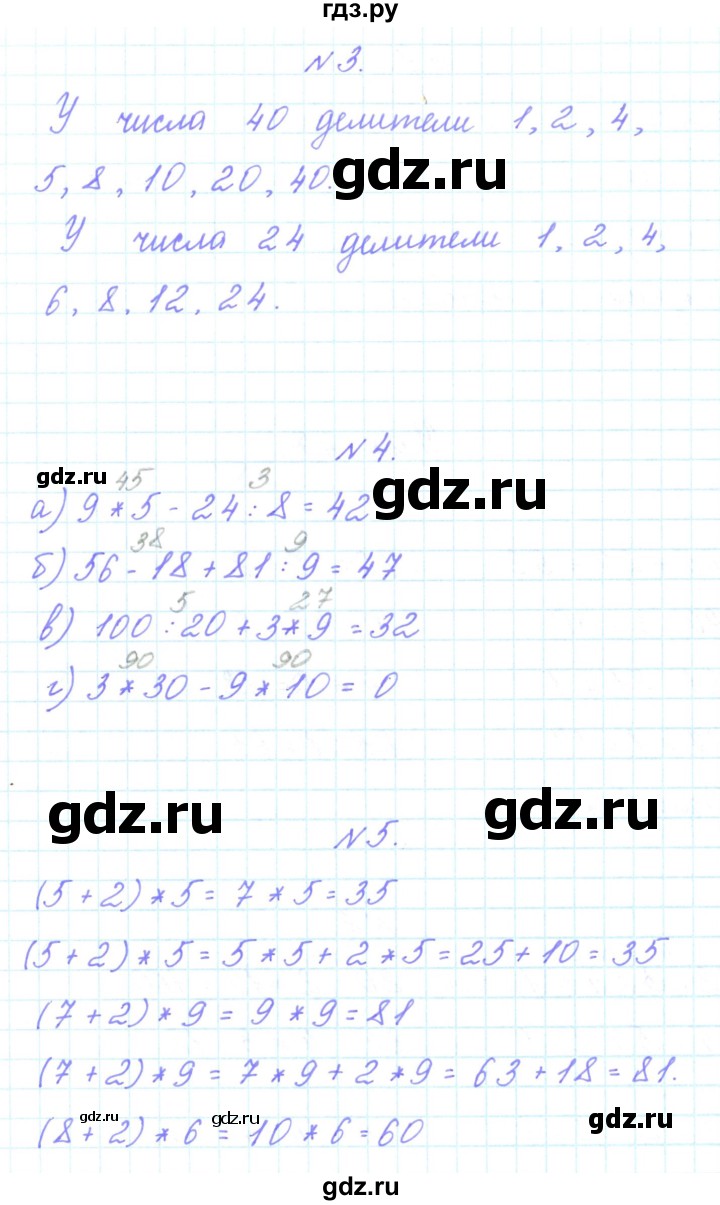 гдз.ру
N 3.
У числа 40 делители 1, 2, 4,
5, 8, 10, 20, 40.
gdz.ru
У числа 24 делители 1, 2, 4,
6, 8, 12, 24.
N 4.
gdz.ru
gdz.ru
45 3
а) 9 * 5 - 24 : 8 = 42
38 9
б) 56 - 18 + 81 : 9 = 47
5 27
в) 100 : 20 + 3 * 9 = 32
90 90
г) 3 * 30 - 9 * 10 = 0
gdz.ru
gdz.ru
N 5.
(5 + 2) * 5 = 7 * 5 = 35
(5 + 2) * 5 = 5 * 5 + 2 * 5 = 25 + 10 = 35
(7 + 2) * 9 = 9 * 9 = 81
(7 + 2) * 9 = 7 * 9 + 2 * 9 = 63 + 18 = 81.
gdz.ru
gdz.ru
gdz.ru
(8 + 2) * 6 = 10 * 6 = 60
gdz.ru